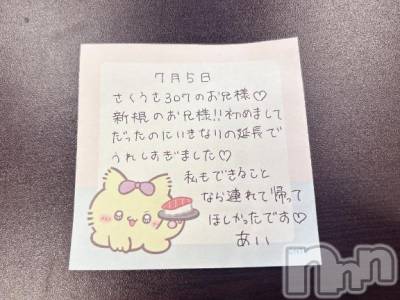 7月5日
さくうさ307のお兄様♡
新規のお兄様!!初めまして
だったのにいきなりの延長で
うれしすぎました♡
私もできること
なら連れて帰って
ほしかったです♡
あい
nnn